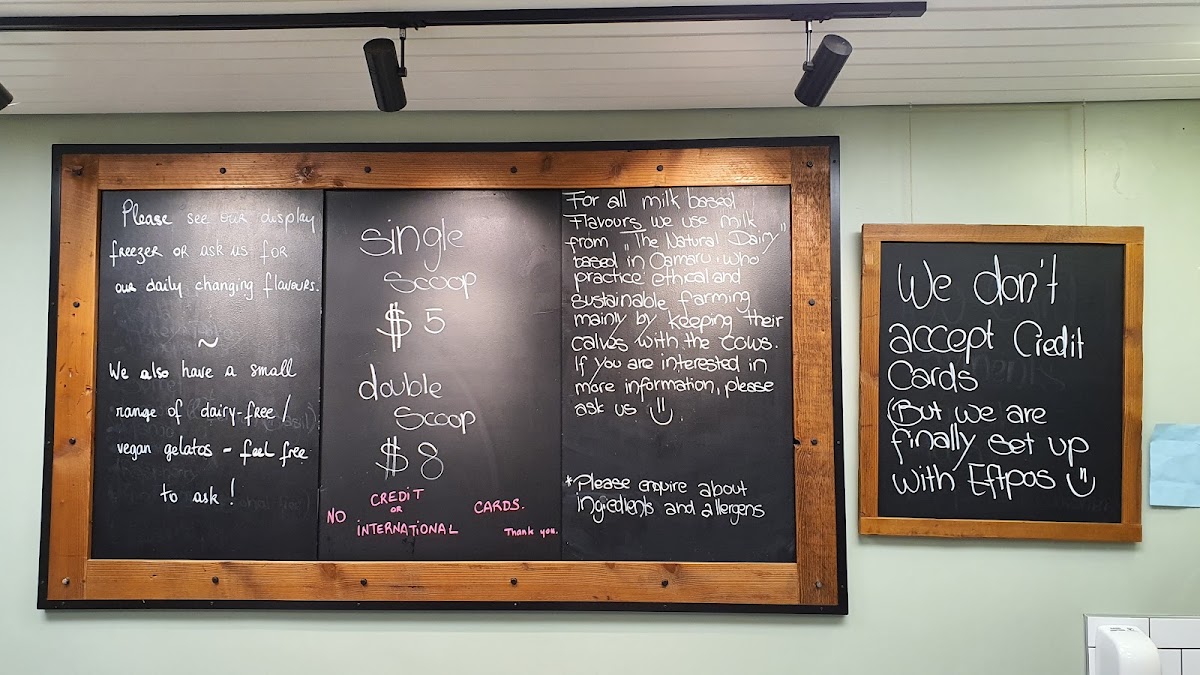 Please see our display
freezer or ask us for
our daily changing flavours.
~
We also have a small
range of dairy-free/
vegan gelatos - feel free
to ask!
single
scoop
$5
double
scoop
$8
NO CREDIT OR INTERNATIONAL CARDS.
Thank you.
For all milk based
Flavours we use milk
from „The Natural Dairy"
based in Oamaru, who
practice ethical and
sustainable farming
mainly by keeping their
calvs with the cows.
If you are interested in
more information, please
ask us
*Please enquire about
ingredients and allergens
We don't
accept Credit
Cards
(But we are
finally set up
with Eftpos